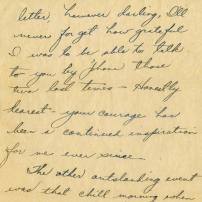 letter, however darling, I'll
never forget how grateful
I was to be able to talk
to you by phone those
two last times - Honestly
dearest - your courage has
been a continued inspiration
for me ever since -
The other outstanding event
was that chill morning when